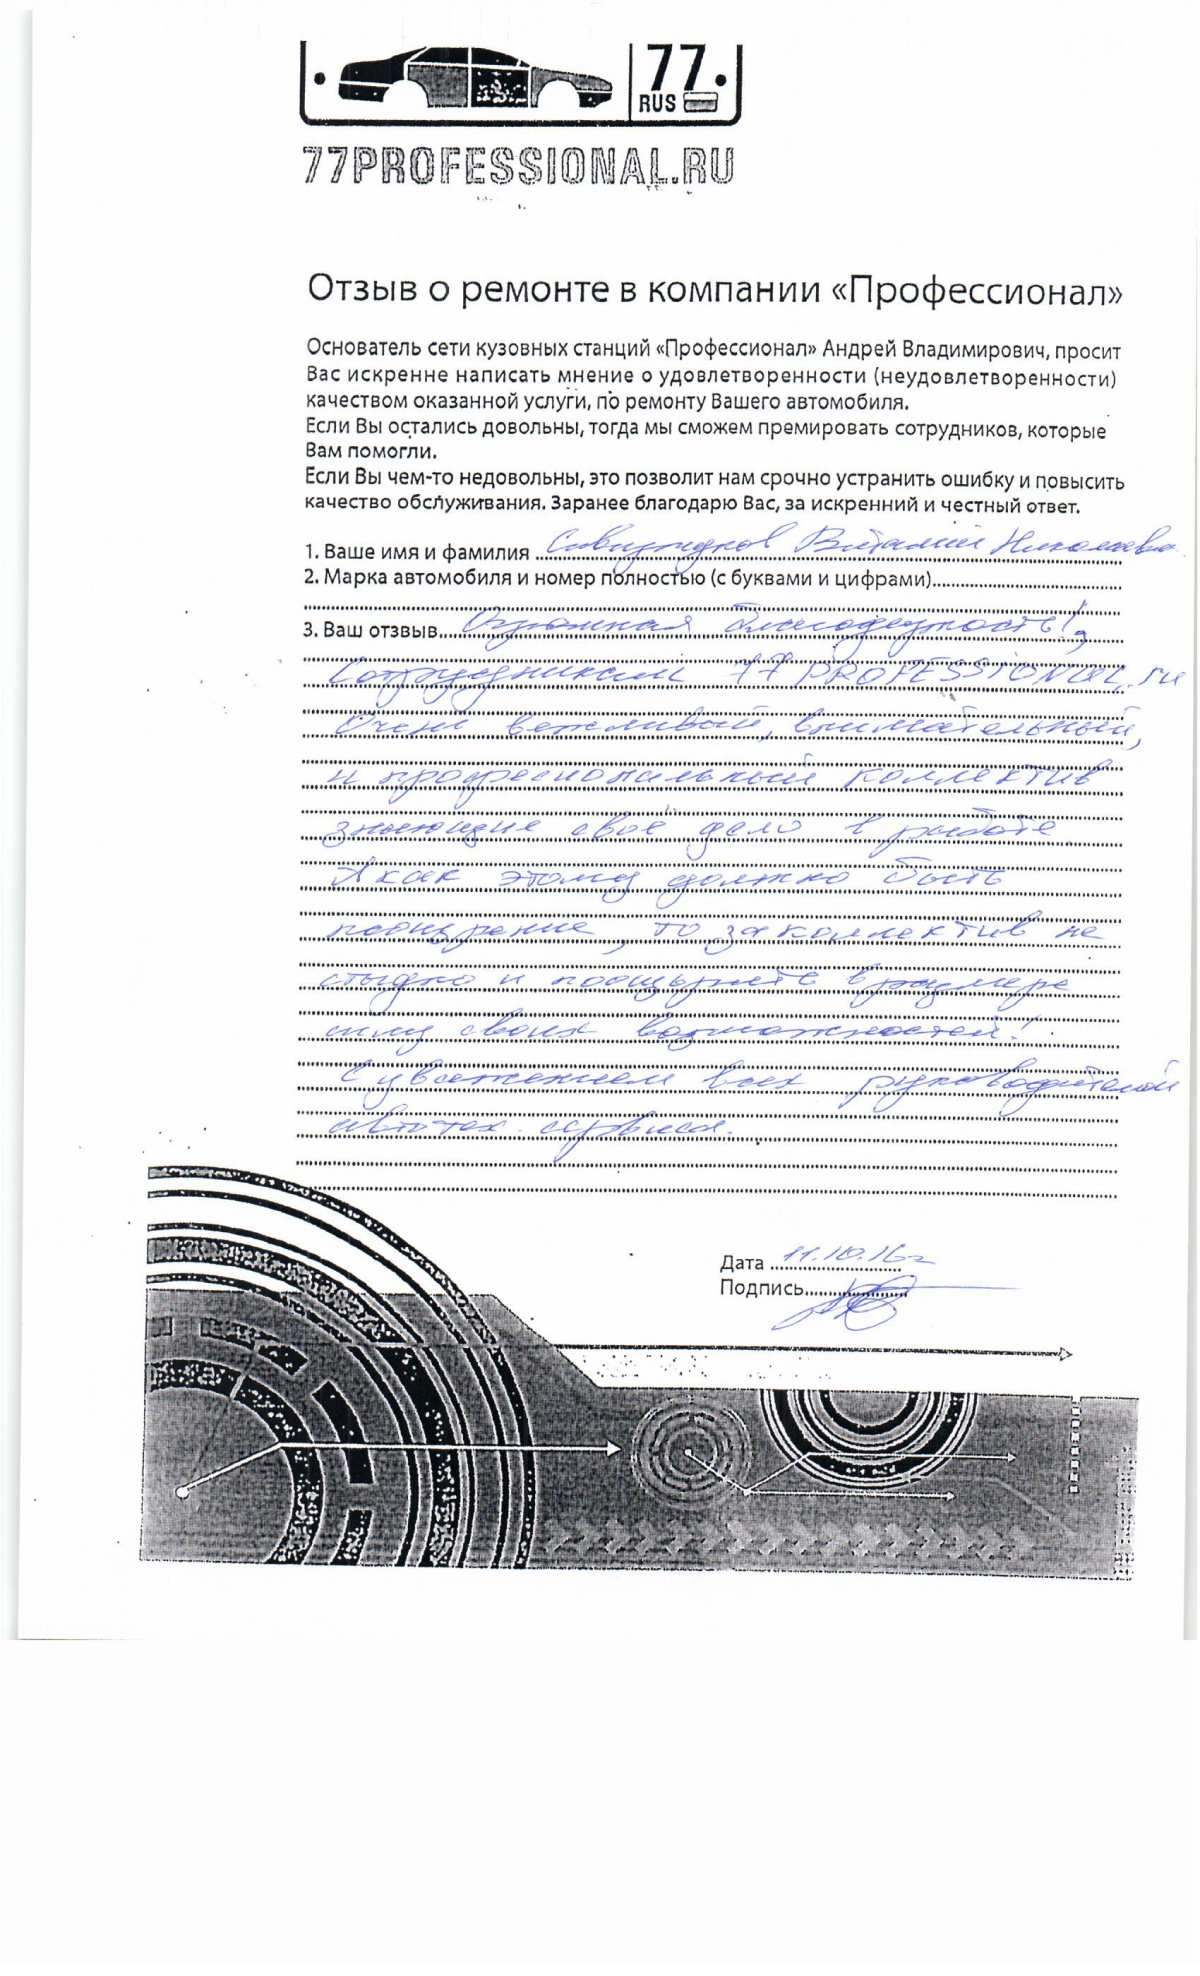 77
RUS
77PROFESSIONAL.RU
Отзыв о ремонте в компании «Профессионал»
Основатель сети кузовных станций «Профессионал» Андрей Владимирович, просит
Вас искренне написать мнение о удовлетворенности (неудовлетворенности)
качеством оказанной услуги, по ремонту Вашего автомобиля.
Если Вы остались довольны, тогда мы сможем премировать сотрудников, которые
Вам помогли.
Если Вы чем-то недовольны, это позволит нам срочно устранить ошибку и повысить
качество обслуживания. Заранее благодарю Вас, за искренний и честный ответ.
1. Ваше имя и фамилия Виталий Николаев
2. Марка автомобиля и номер полностью (с буквами и цифрами)
3. Ваш отзвыв Огромная благодарность!,
Сотрудникам 77 PROFESSIONAL.ru
Очень вежливый, внимательный,
и профессиональный коллектив
знающие своё дело в работе
А как этому должно быть
поощрение, то за коллектив не
стыдно и поощрять в размере
силу своих возможностей!
С уважением всех руководителей
автотех. сервиса.
Дата 11.10.16г
Подпись